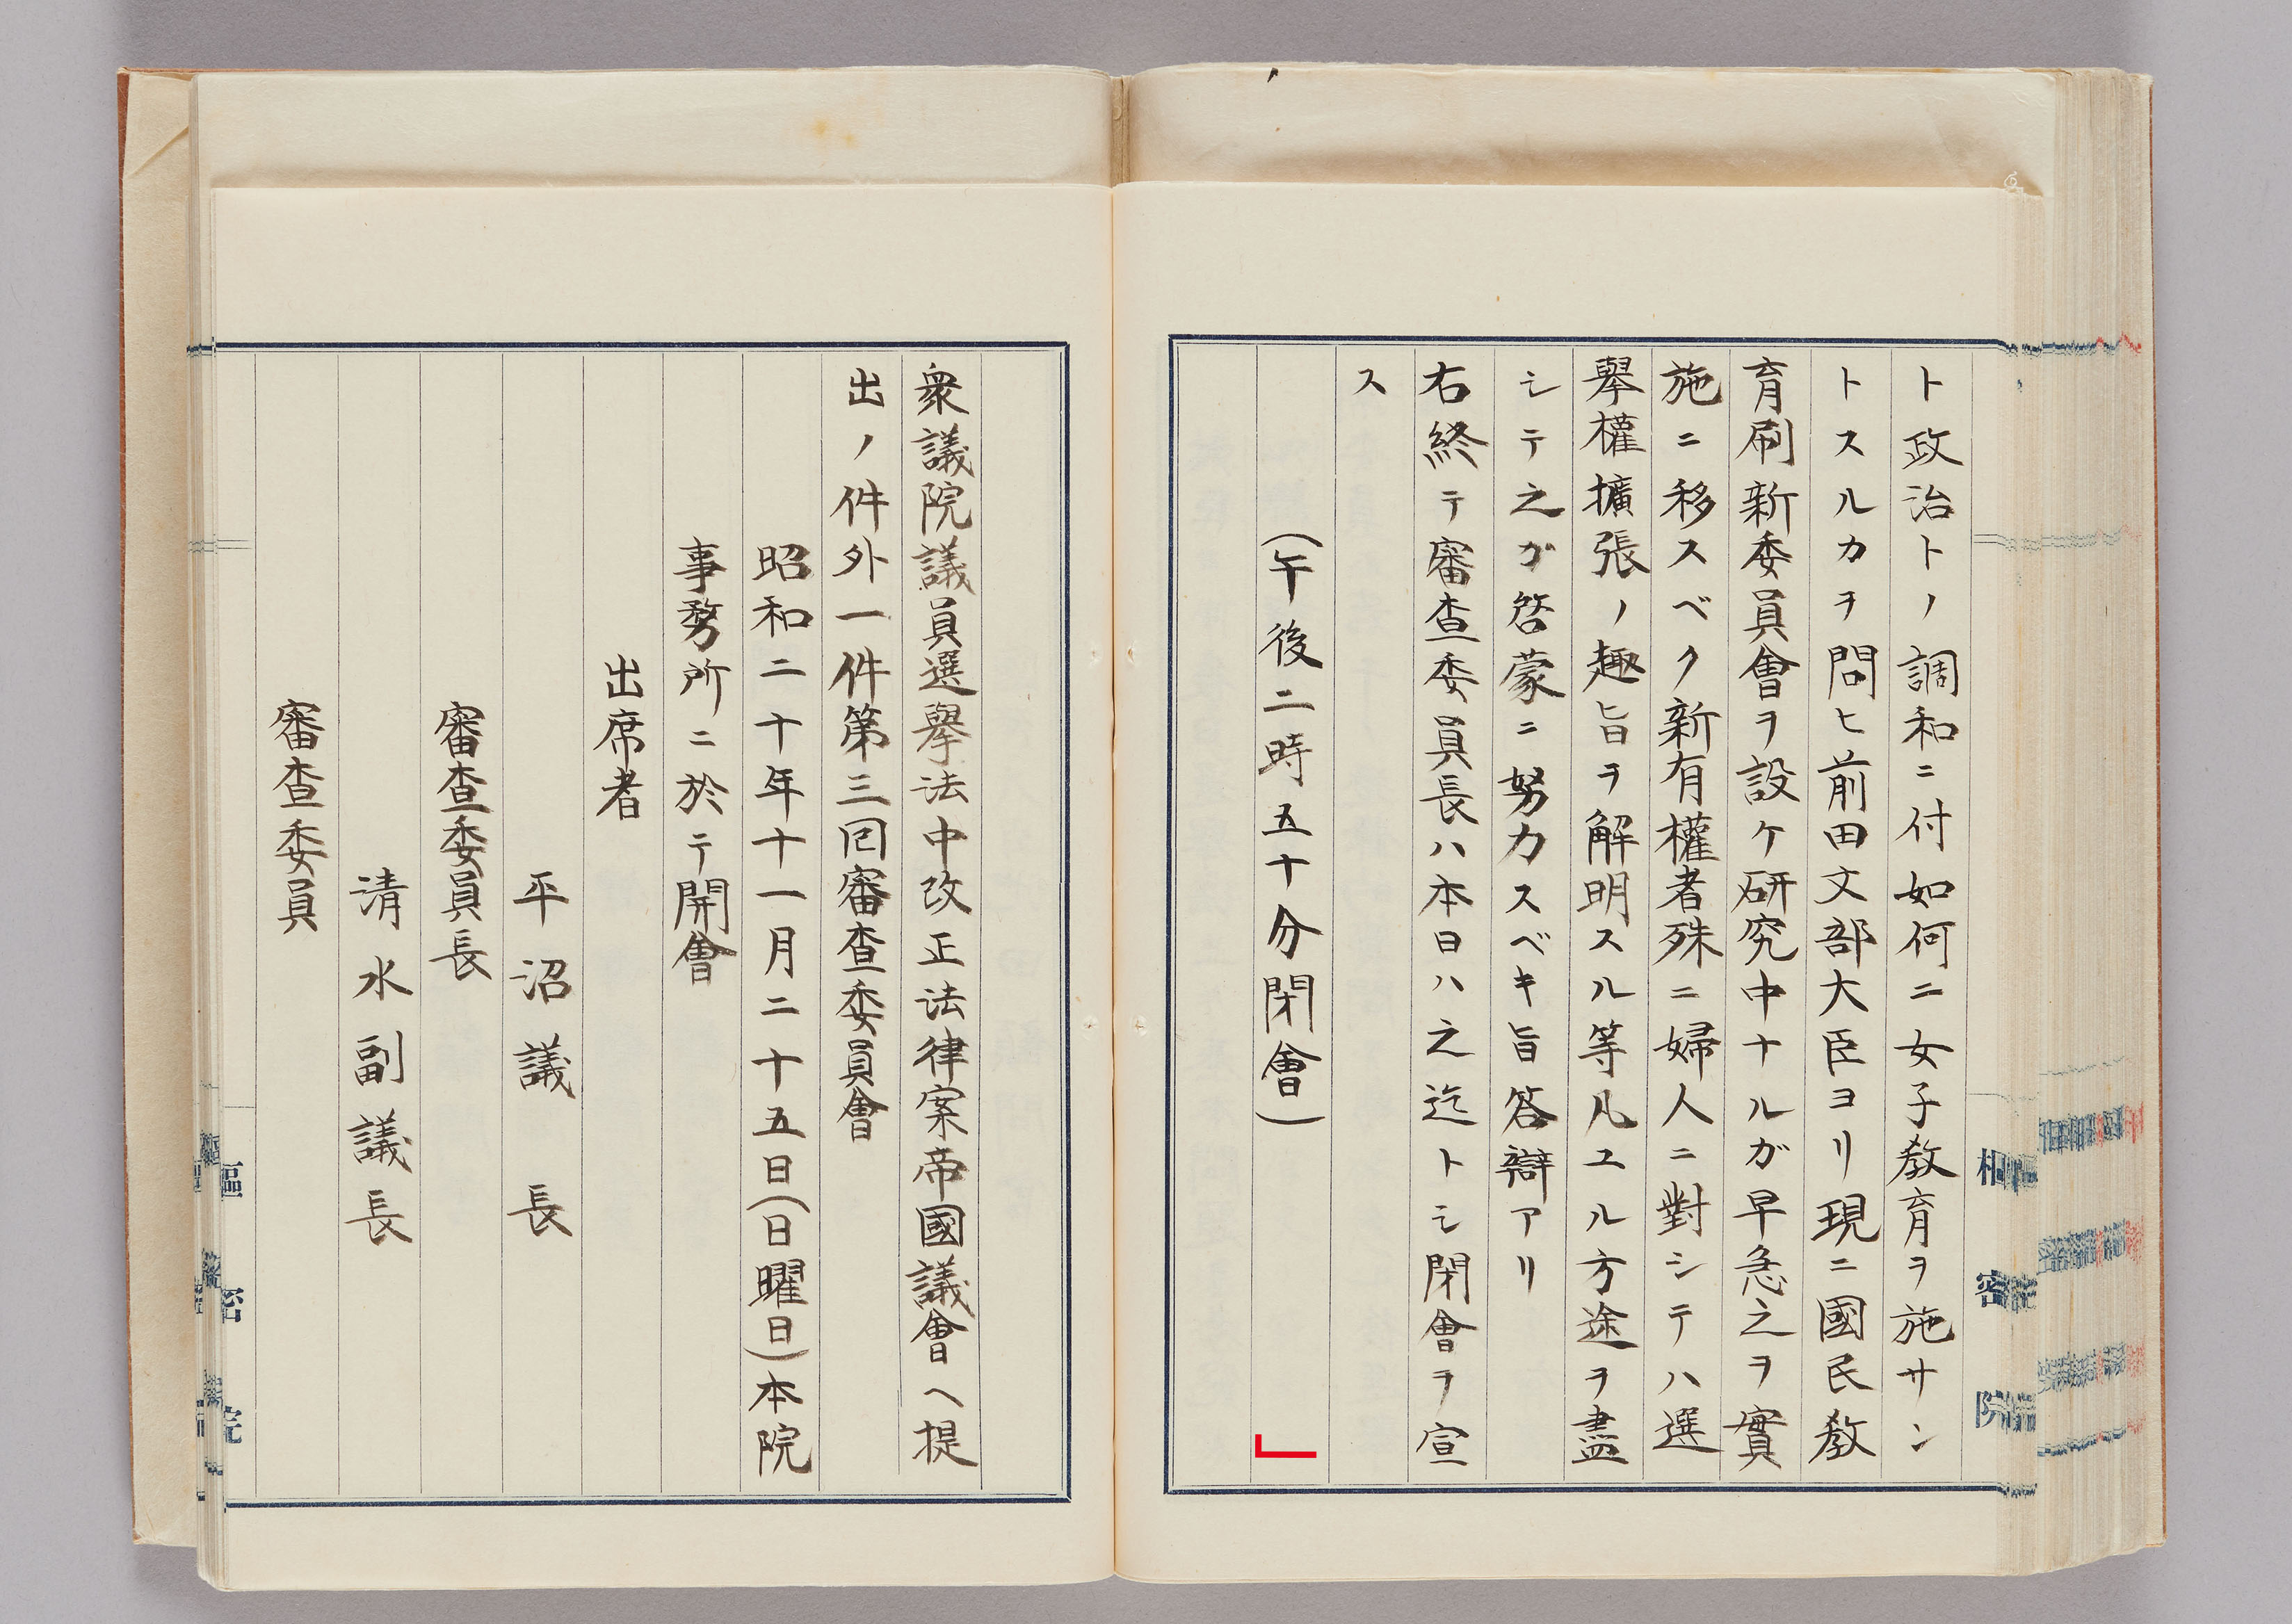 ト政治トノ調和ニ付如何ニ女子教育ヲ施サン
トスルカヲ問ヒ前田文部大臣ヨリ現ニ國民教
育刷新委員會ヲ設ケ研究中ナルガ早急之ヲ實
施ニ移スベク新有權者殊ニ婦人ニ對シテハ選
擧權擴張ノ趣旨ヲ解明スル等凡ユル方途ヲ盡
シテ之ガ啓蒙ニ努力スベキ旨答辯アリ
右終テ審査委員長ハ本日ハ之迄トシ閉會ヲ宣
ス
(午後二時五十分閉會)
樞密院
衆議院議員選擧法中改正法律案帝國議會ヘ提
出ノ件外一件第三囘審査委員會
昭和二十年十一月二十五日(日曜日)本院
事務所ニ於テ開會
出席者
平沼議長
審査委員長
清水副議長
審査委員
樞密院